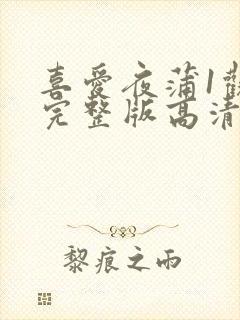 喜愛夜蒲1觀
完整版高清
黎痕之雨